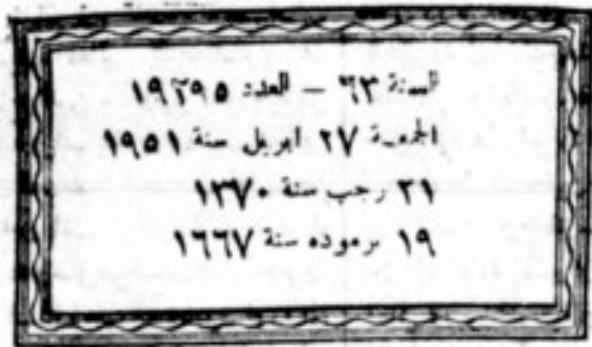 السنة ٦٣ – العدد ١٩٦٩٥
الجمعة ٢٧ ابريل سنة ١٩٥١
٢١ رجب سنة ١٣٧٠
١٩ برموده سنة ١٦٦٧